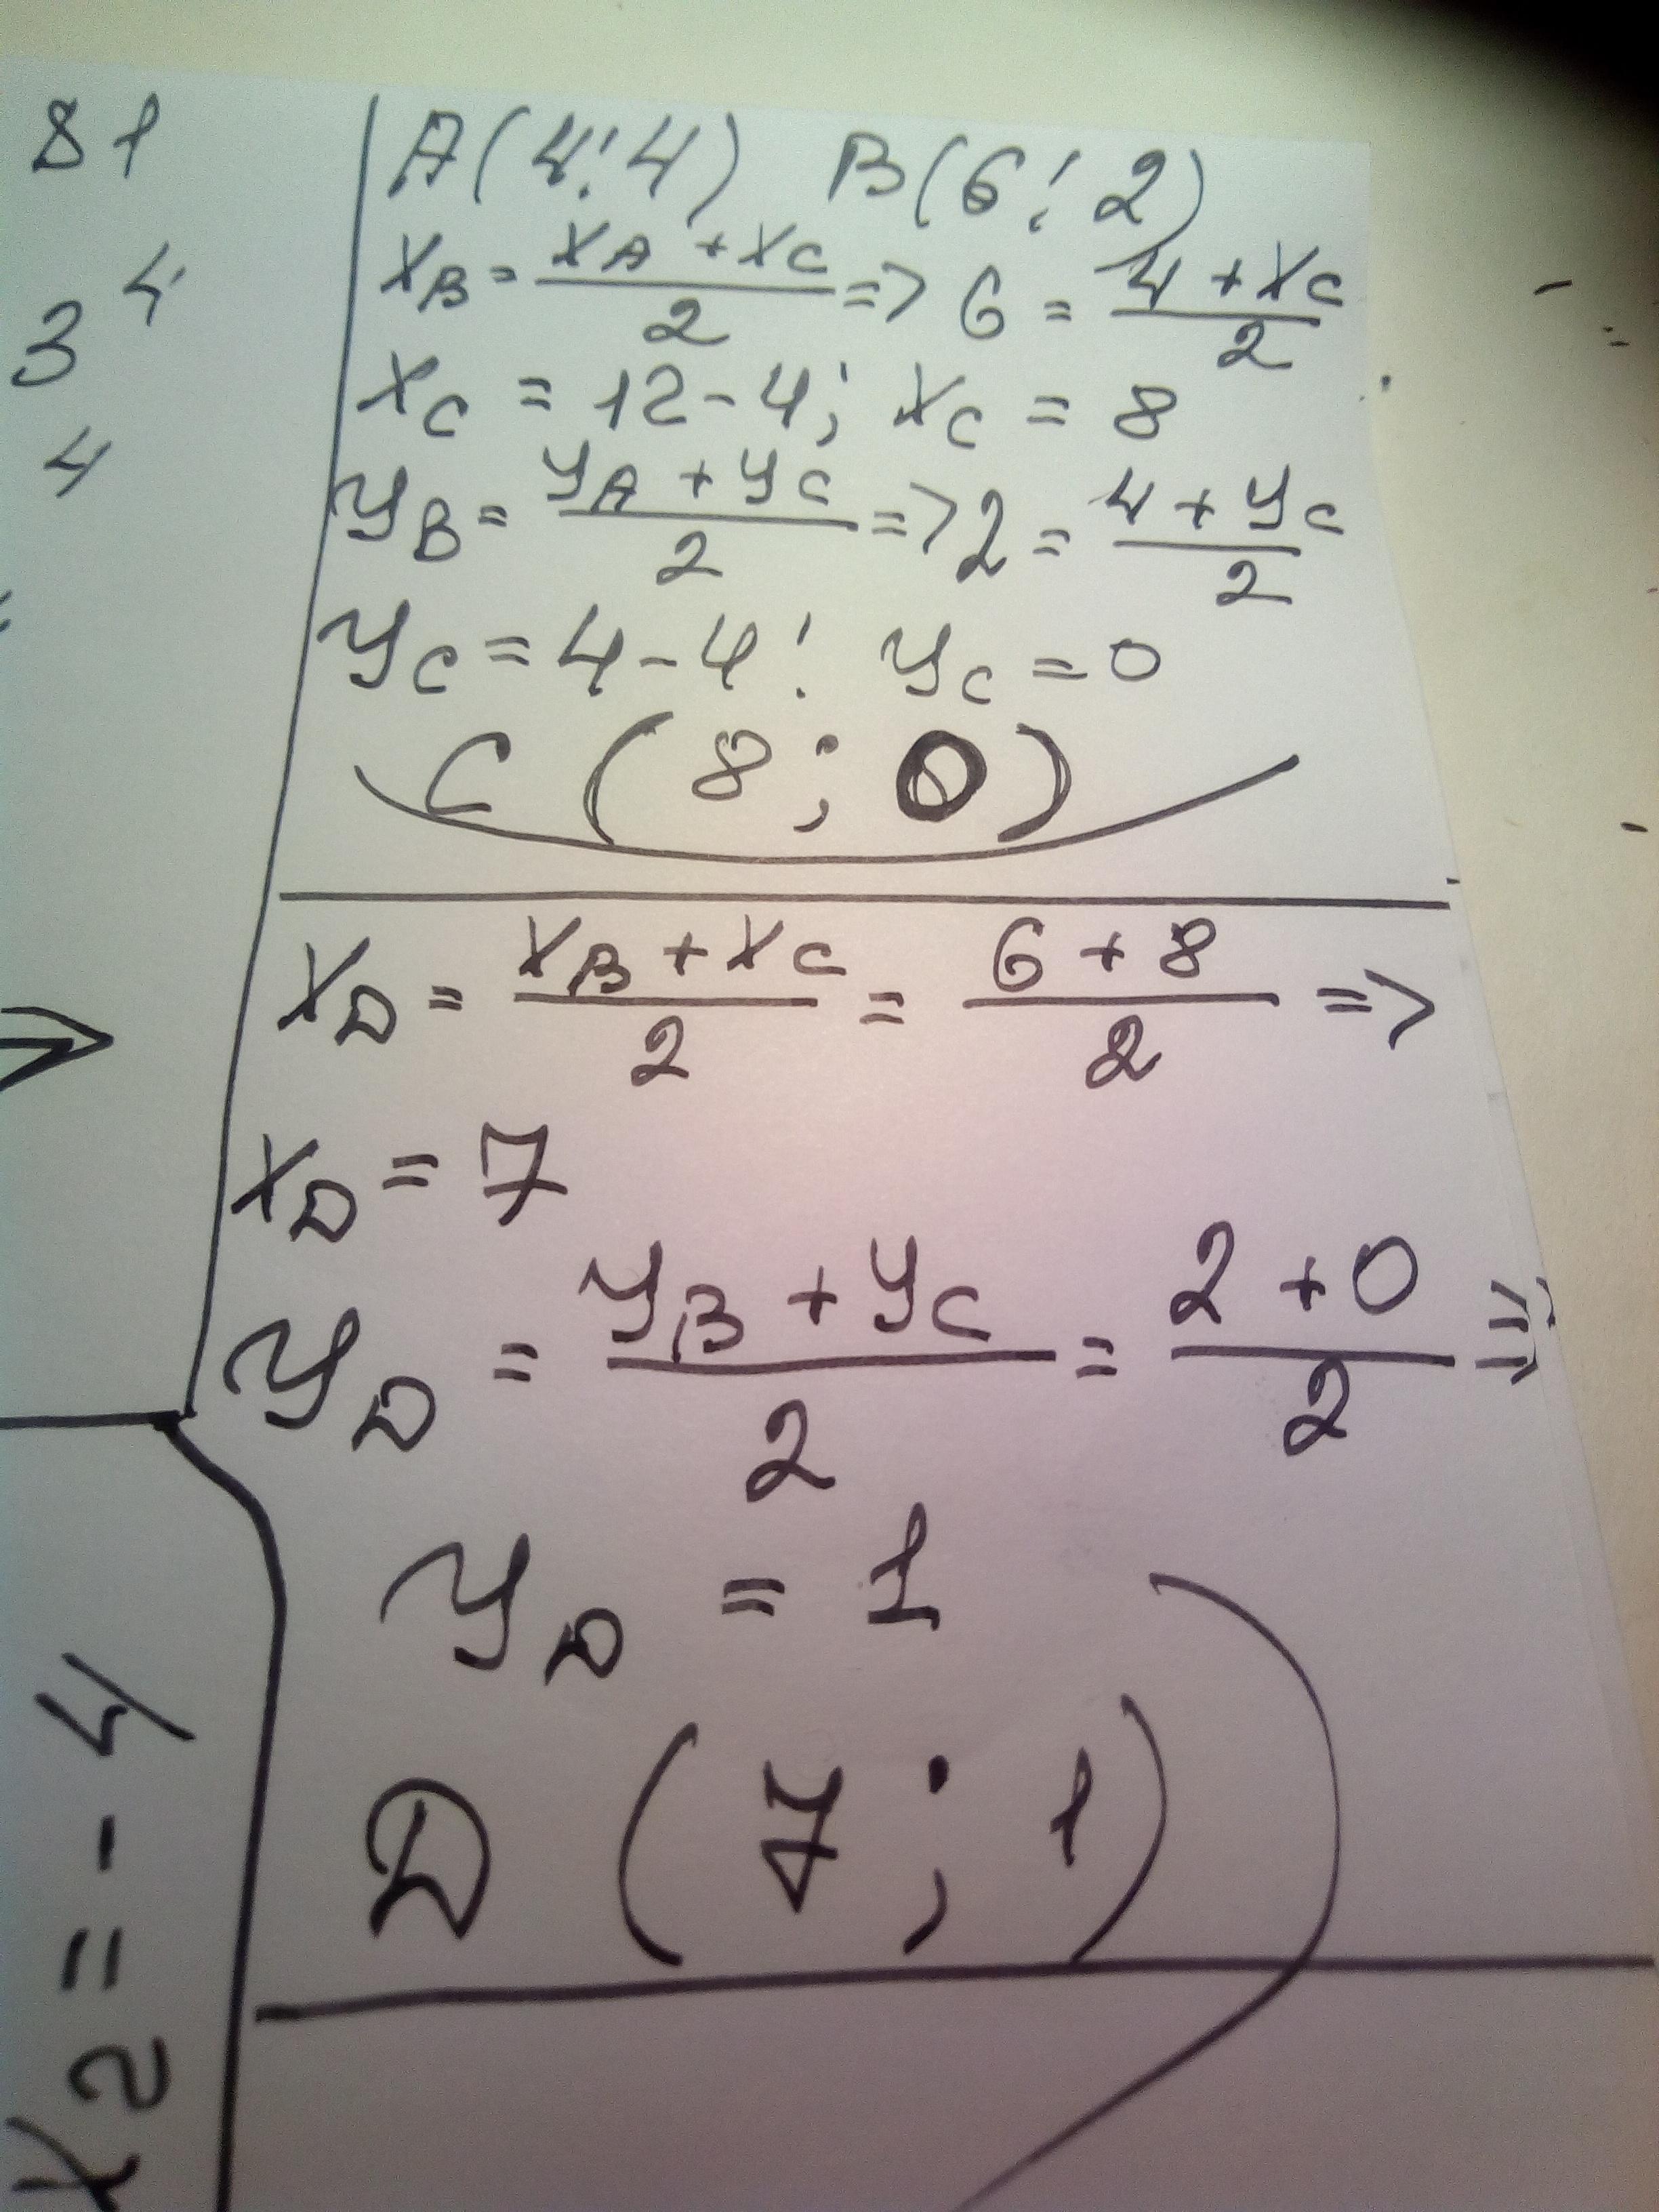 81
3⁴
4
A(4;4) B(6;2)
x_B = (x_A + x_C)/2 => 6 = (4 + x_C)/2
x_C = 12 - 4; x_C = 8
y_B = (y_A + y_C)/2 => 2 = (4 + y_C)/2
y_C = 4 - 4; y_C = 0
C (8; 0)
x_D = (x_B + x_C)/2 = (6 + 8)/2 =>
x_D = 7
y_D = (y_B + y_C)/2 = (2 + 0)/2 =>
y_D = 1
D (7; 1)
x₂ = -4